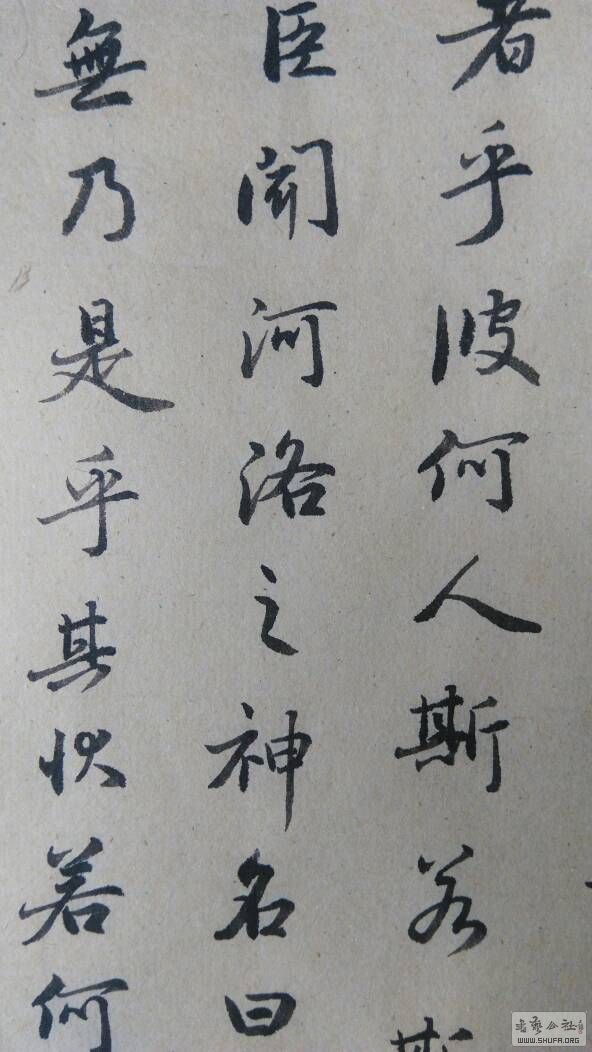 者乎彼何人斯若斯
臣聞河洛之神名曰
無乃是乎其狀若何
書藝公社
WWW.SHUFA.ORG